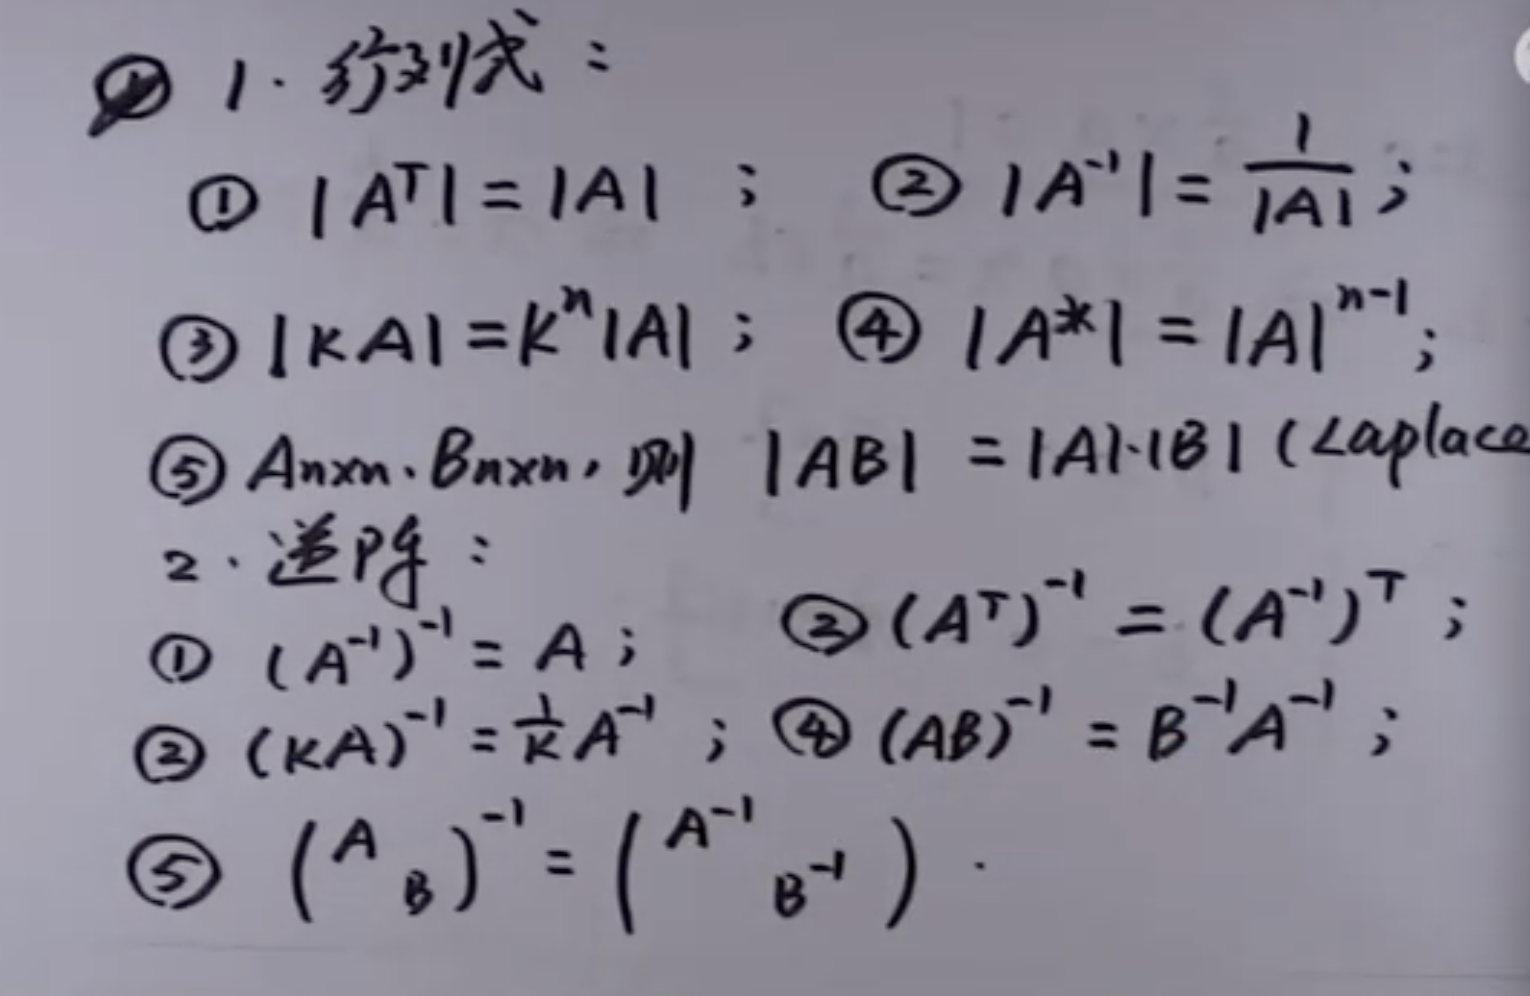 1. 行列式：
① |Aᵀ| = |A| ; ② |A⁻¹| = 1/|A| ;
③ |KA| = Kⁿ|A| ; ④ |A*| = |A|ⁿ⁻¹ ;
⑤ Anxn. Bnxn, 则 |AB| = |A|·|B| (Laplace
2. 逆阵：
① (A⁻¹)⁻¹ = A ; ③ (Aᵀ)⁻¹ = (A⁻¹)ᵀ ;
② (KA)⁻¹ = 1/K A⁻¹ ; ④ (AB)⁻¹ = B⁻¹A⁻¹ ;
⑤ (A B)⁻¹ = (A⁻¹ B⁻¹) .